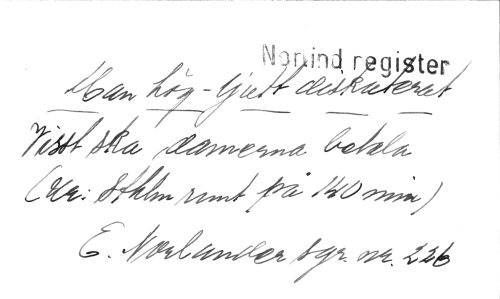 Norlind register
Man hög-ljutt diskuterat
Visst ska damerna betala
(ur: Sthlm runt på 140 min)
E. Norlander sgr. nr. 226